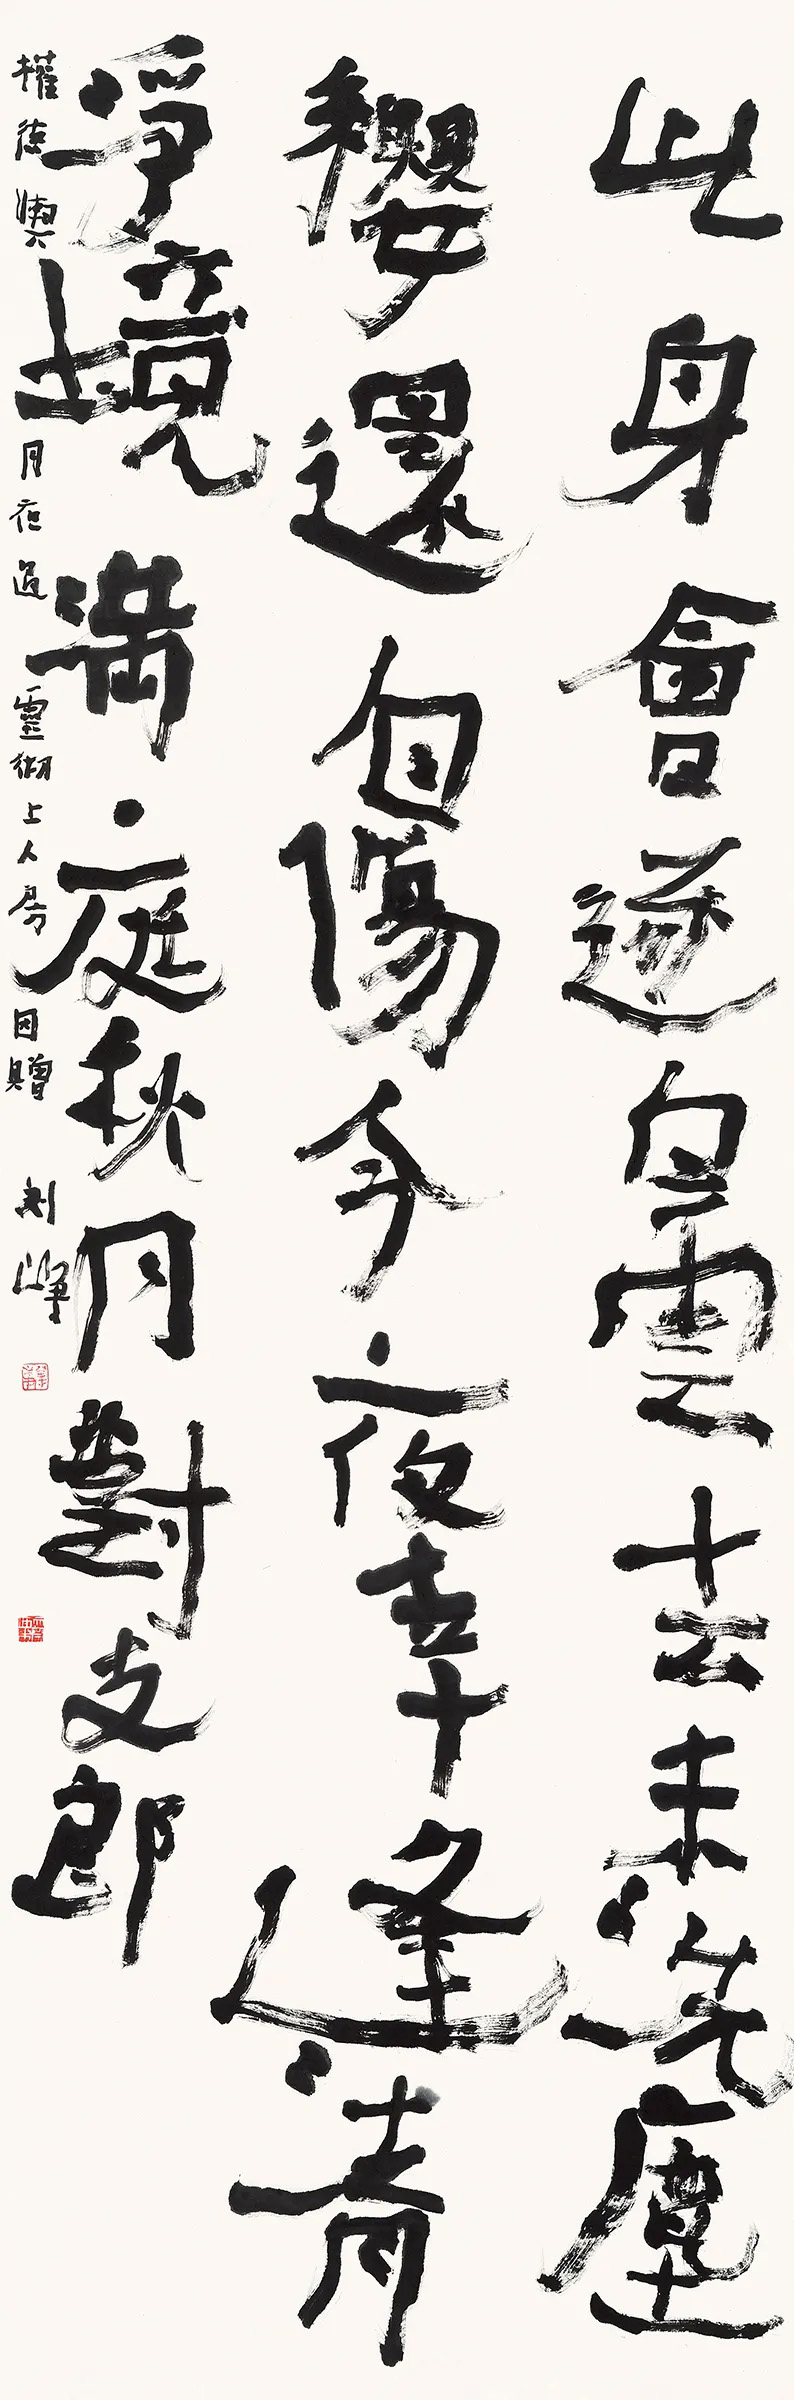 此身會逐白雲去未洗塵
纓還自傷今夜幸逢清
淨境滿庭秋月對支郎
權德輿 月夜過靈徹上人房因贈 刘峰